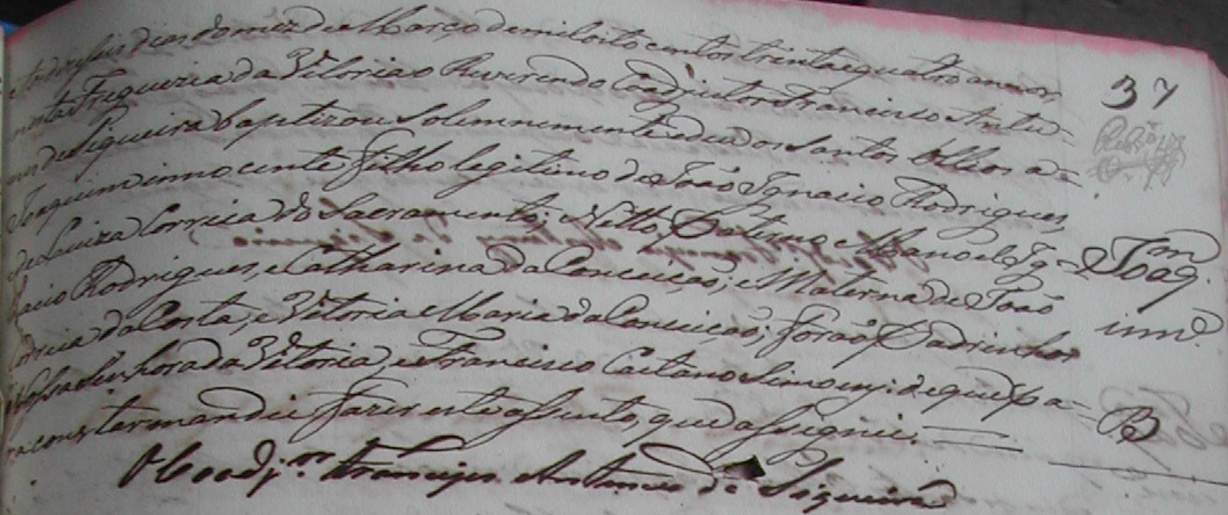 dezeseis dias do mez de Março de mil oito centos trinta e quatro annos
nesta Freguezia da Vitoria o Reverendo Coadjutor Francisco Anto=
nio de Siqueira baptizou Solemnemente e deu os Santos Olleos a=
Joaquim innocente filho legitimo de João Ignacio Rodrigues,
e de Luiza Correia do Sacramento; Netto Paterno Manoel Ig=
nacio Rodrigues, e Catharina da Conceição; e Materna de João
Correia da Costa, e Vitoria Maria da Conceição; forão Padrinhos
Nossa Senhora da Vitoria, e Francisco Caetano Simoens: de que pa=
ra constar mandei fazer este assento, que assignei.
O Coadjor Francisco Antonio de Siqueira
37
Joaqm
inne
B